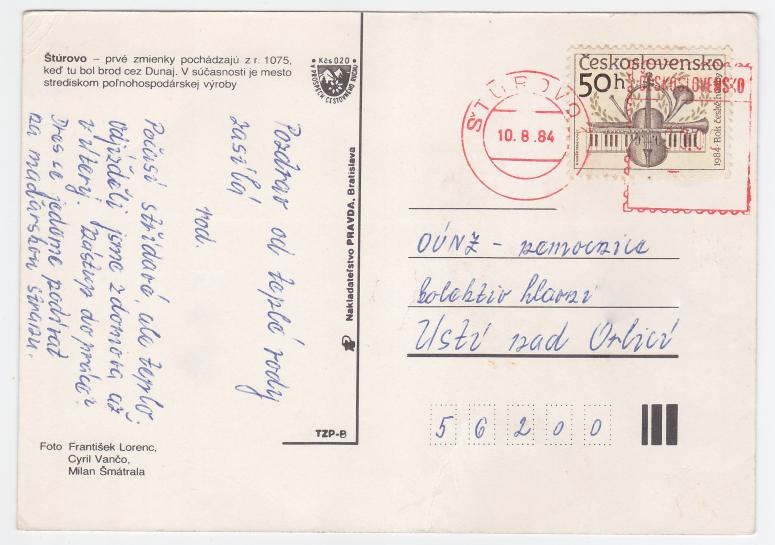 Štúrovo – prvé zmienky pochádzajú z r. 1075,
keď tu bol brod cez Dunaj. V súčasnosti je mesto
strediskom poľnohospodárskej výroby
Kčs 0.20
A PROSPECH CESTOVNÉHO RUCHU
Pozdrav od teplé vody
zasílá
rod.
Počasí střídavé, ale teplo.
Odjížděli jsme z domova až
v úterý. Zástup do práce?
Dnes se jedeme podívat
na maďarskou stranu.
Foto František Lorenc,
Cyril Vančo,
Milan Šmátrala
TZP-B
Nakladateľstvo PRAVDA, Bratislava
Československo
50h
1984 · Rok české hudby
ŠTÚROVO
10.8.84
ČESKOSLOVENSKO
OÚNZ – nemocnice
kolektiv hlavní
Ústí nad Orlicí
56200